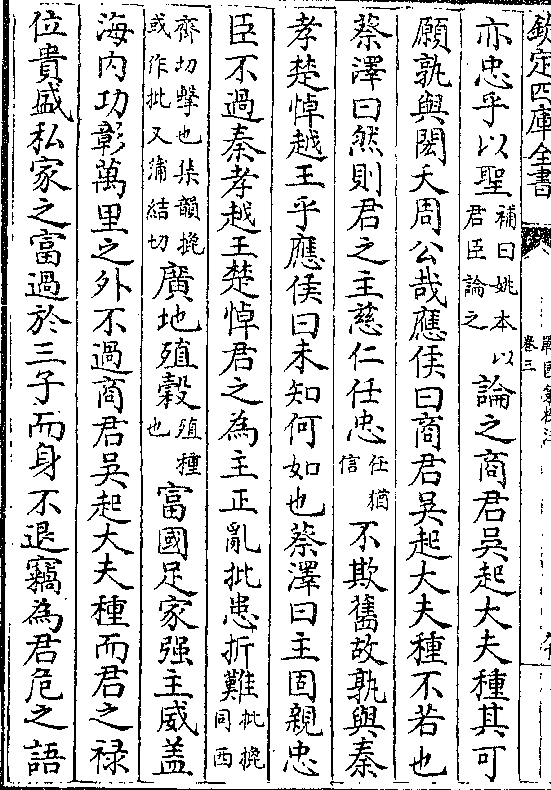 欽定四庫全書
戰國策校注
卷三
亦忠乎以聖補曰姚本以君臣論之論之商君吳起大夫種其可
願孰與閎夭周公哉應侯曰商君吳起大夫種不若也
蔡澤曰然則君之主慈仁任忠任猶信不欺舊故孰與秦
孝楚悼越王乎應侯曰未知何如也蔡澤曰主固親忠
臣不過秦孝越王楚悼君之為主正亂批患折難批同西
齊切擊也集韻或作批又蒲結切廣地殖穀殖種也富國足家强主威盖
海内功彰萬里之外不過商君吳起大夫種而君之禄
位貴盛私家之富過於三子而身不退竊為君危之語